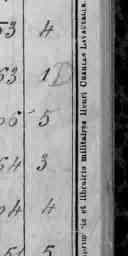 53 4
53 1 D
06 5
54 3
04 4
5
et librairie militaires Henri CHARLES-LAVAUZELLE.